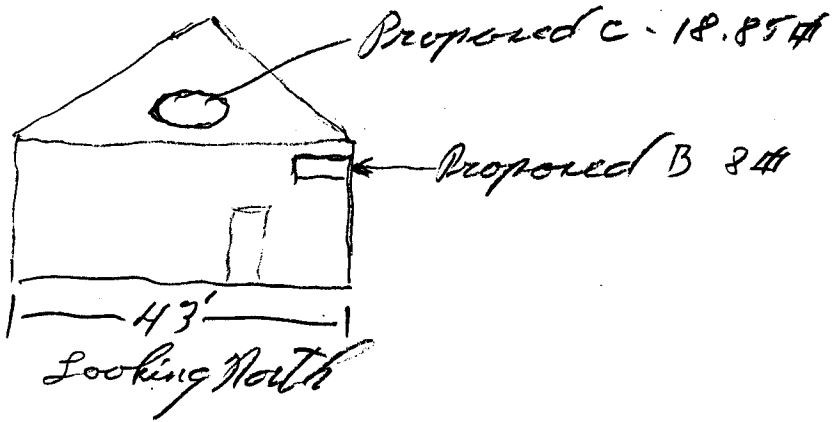 Proposed C - 18.85 ⌗
Proposed B 8 ⌗
43'
Looking North